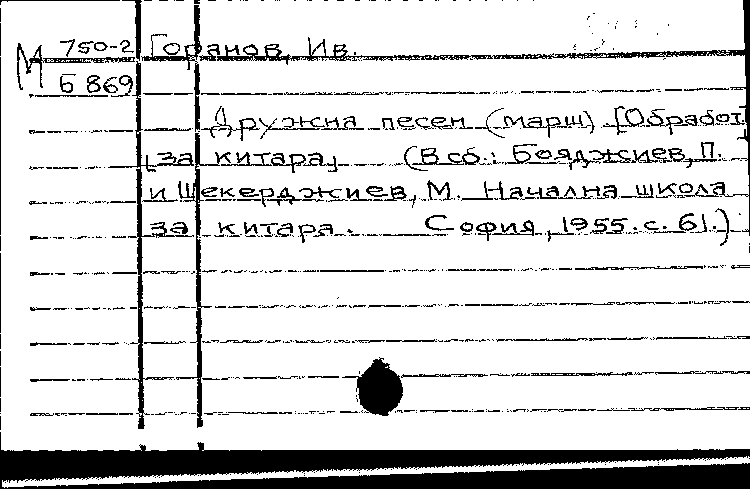 М 750-2 Горанов, Ив.
Б 869
Дружна песен (марш) [Обработ.]
[за китара] (В сб.: Бояджиев, П.
и Шекерджиев, М. Начална школа
за китара. София, 1955. с. 61.)